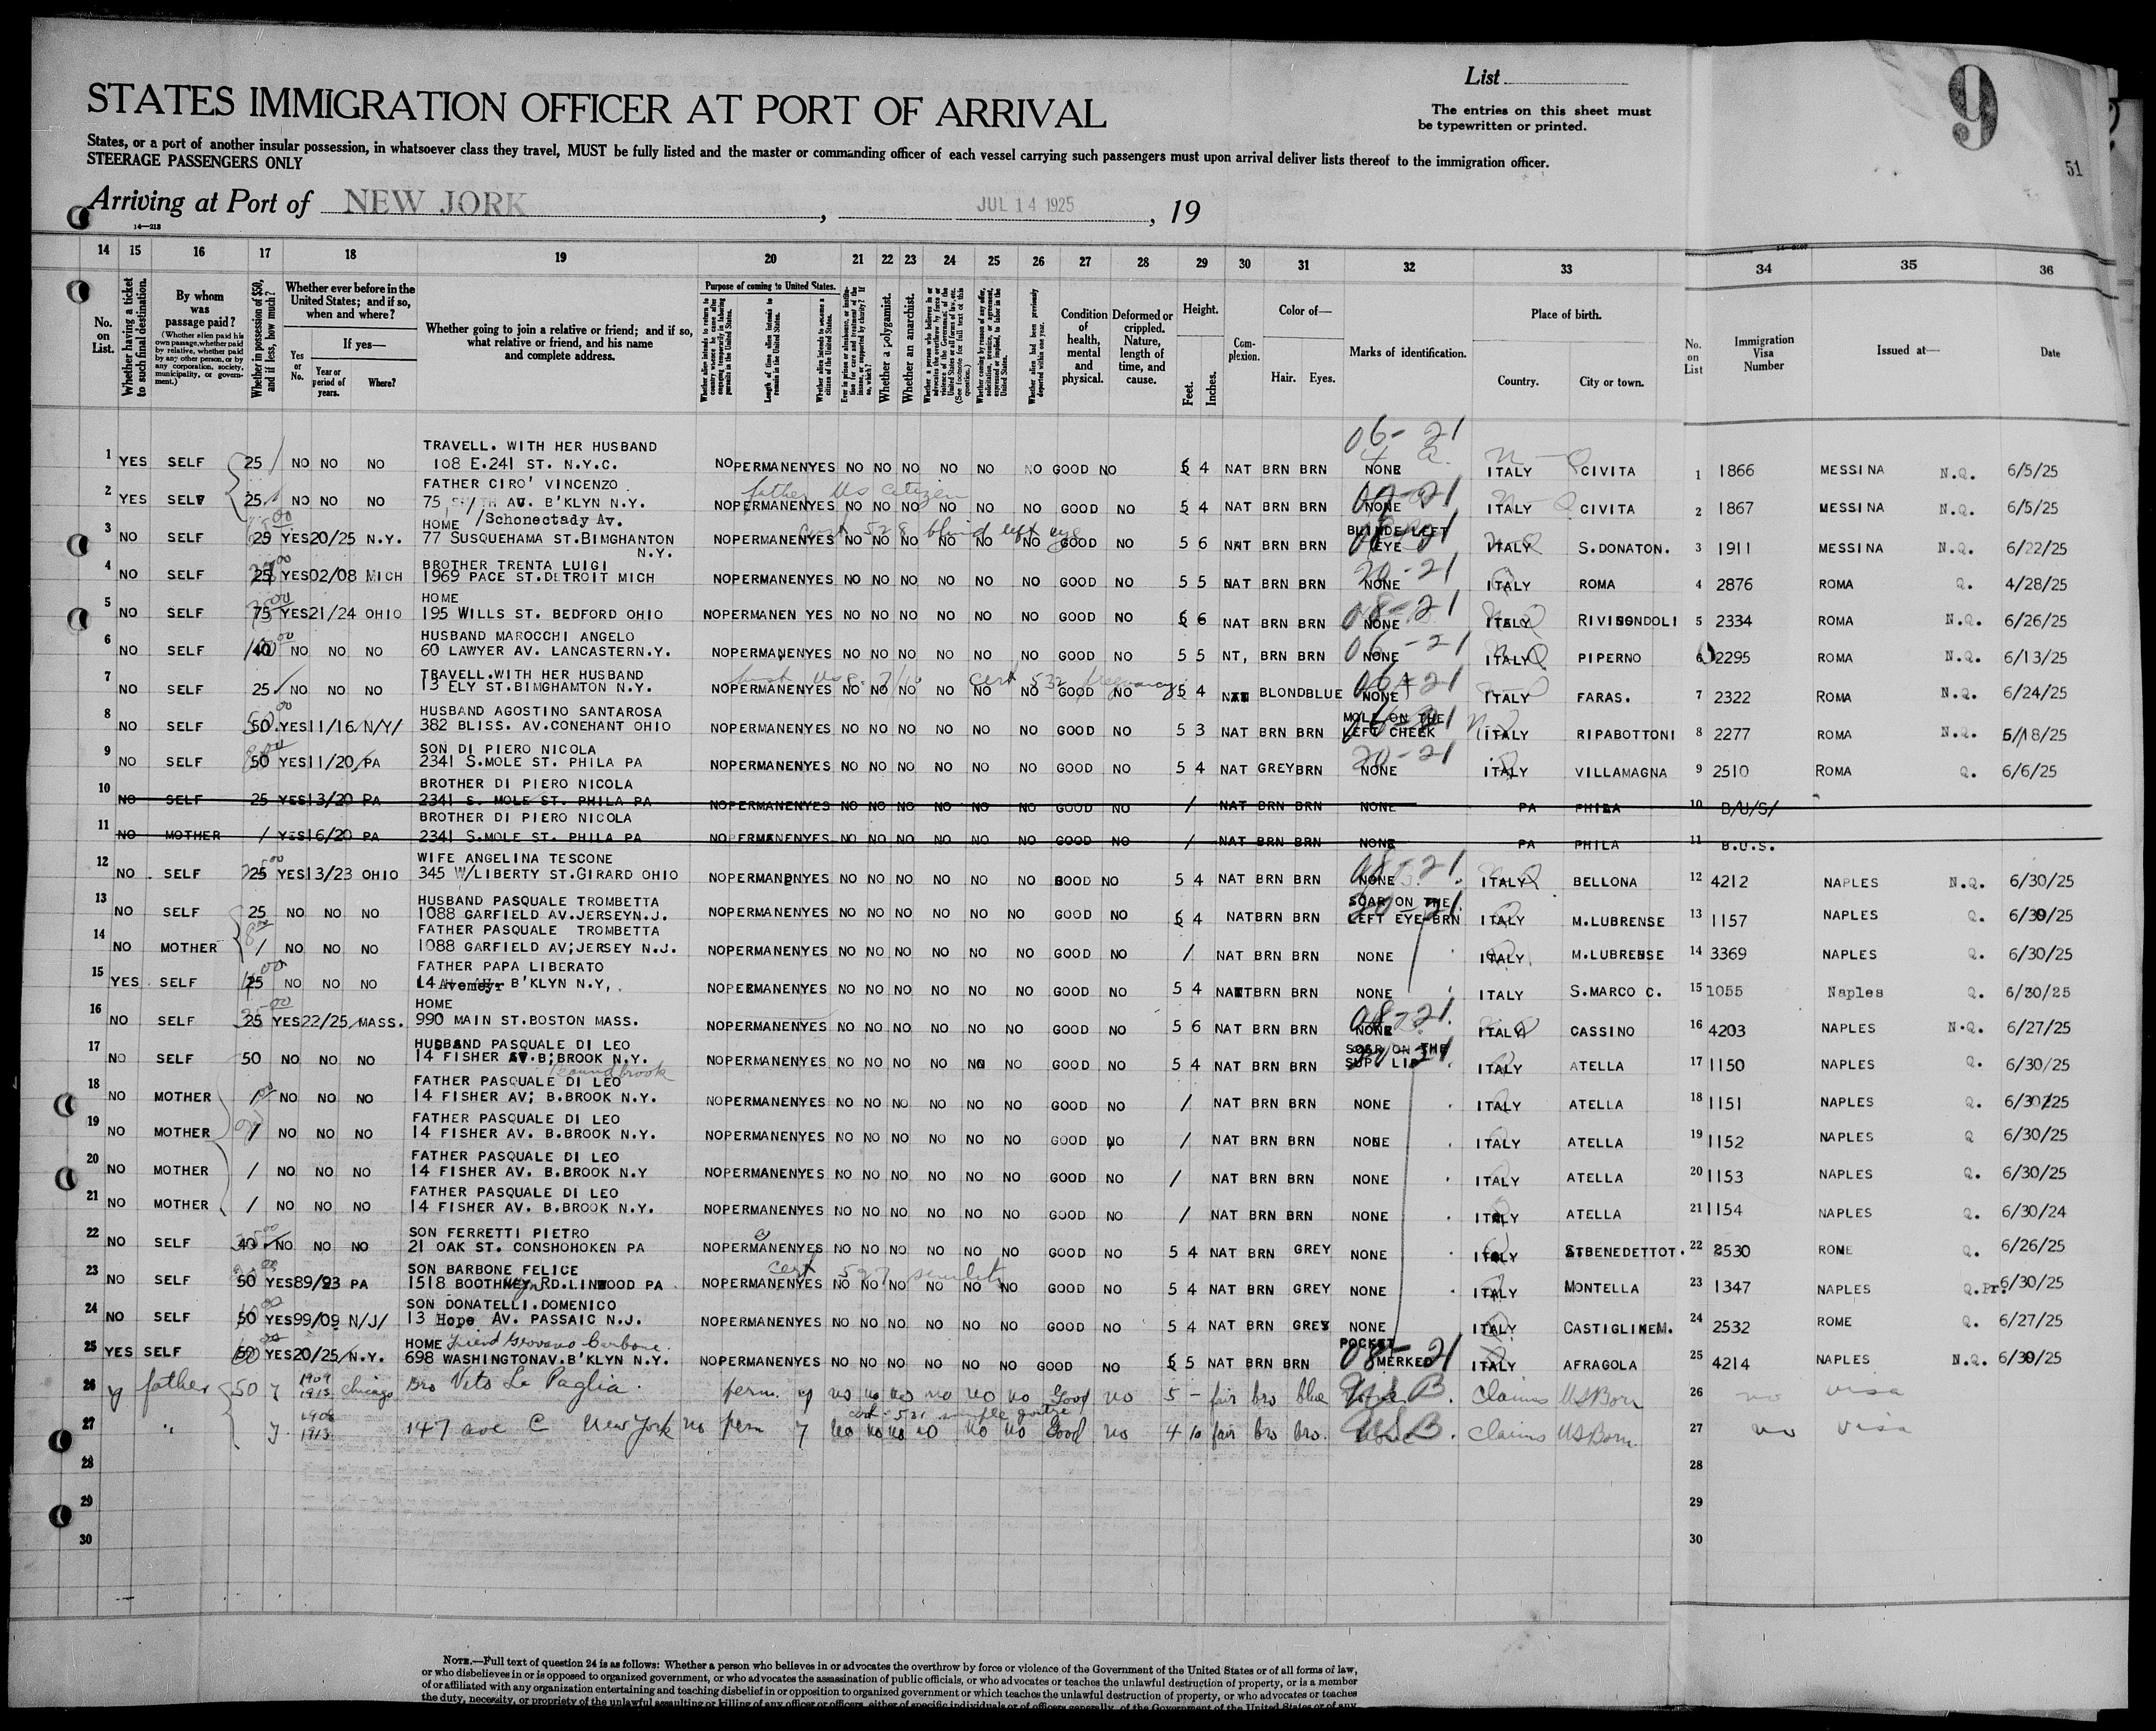 List
9
STATES IMMIGRATION OFFICER AT PORT OF ARRIVAL
The entries on this sheet must
be typewritten or printed.
51
States, or a port of another insular possession, in whatsoever class they travel, MUST be fully listed and the master or commanding officer of each vessel carrying such passengers must upon arrival deliver lists thereof to the immigration officer.
STEERAGE PASSENGERS ONLY
Arriving at Port of NEW JORK, JUL 14 1925, 19
14—213
14 15 16 17 18 19 20 21 22 23 24 25 26 27 28 29 30 31 32 33 34 35 36
No. on List.
Whether having a ticket to such final destination.
By whom was passage paid?
(Whether alien paid his own passage, whether paid by relative, whether paid by any other person, or by any corporation, society, municipality, or government.)
Whether in possession of $50, and if less, how much?
Whether ever before in the United States; and if so, when and where?
If yes—
Yes or No.
Year or period of years.
Where?
Whether going to join a relative or friend; and if so, what relative or friend, and his name and complete address.
Purpose of coming to United States.
Length of time alien intends to remain in the United States.
Whether alien intends to become a citizen of the United States.
Whether a polygamist.
Whether an anarchist.
Condition of health, mental and physical.
Deformed or crippled. Nature, length of time, and cause.
Height.
Feet. Inches.
Complexion.
Color of—
Hair. Eyes.
Marks of identification.
Place of birth.
Country. City or town.
No. on List
Immigration Visa Number
Issued at—
Date
TRAVELL. WITH HER HUSBAND
1 YES SELF 25 NO NO NO 108 E.241 ST. N.Y.C. NO PERMANEN YES NO NO NO NO NO NO GOOD NO 5 4 NAT BRN BRN NONE ITALY CIVITA 1 1866 MESSINA N.Q. 6/5/25
FATHER CIRO' VINCENZO
2 YES SELF 25 NO NO NO 75 AV. B'KLYN N.Y. NO PERMANEN YES NO NO NO NO NO NO GOOD NO 5 4 NAT BRN BRN NONE ITALY CIVITA 2 1867 MESSINA N.Q. 6/5/25
father US citizen
HOME /Schonectady Av.
cert 528 blind left eye
3 NO SELF 25 YES 20/25 N.Y. 77 SUSQUEHAMA ST.BIMGHANTON N.Y. NO PERMANEN YES NO NO NO NO NO NO GOOD NO 5 6 NAT BRN BRN BLINDE LEFT EYE ITALY S.DONATON. 3 1911 MESSINA N.Q. 6/22/25
BROTHER TRENTA LUIGI
4 NO SELF 25 YES 02/08 MICH 1969 PACE ST.DETROIT MICH NO PERMANEN YES NO NO NO NO NO NO GOOD NO 5 5 NAT BRN BRN NONE 20-21 ITALY ROMA 4 2876 ROMA Q. 4/28/25
HOME
5 NO SELF 75 YES 21/24 OHIO 195 WILLS ST. BEDFORD OHIO NO PERMANEN YES NO NO NO NO NO NO GOOD NO 5 6 NAT BRN BRN NONE 08-21 ITALY RIVISONDOLI 5 2334 ROMA N.Q. 6/26/25
HUSBAND MAROCCHI ANGELO
6 NO SELF 40 NO NO NO 60 LAWYER AV. LANCASTERN.Y. NO PERMANEN YES NO NO NO NO NO NO GOOD NO 5 5 NT, BRN BRN NONE 06-21 ITALY PIPERNO 6 2295 ROMA N.Q. 6/13/25
TRAVELL.WITH HER HUSBAND
cert 532 pregnancy
7 NO SELF 25 NO NO NO 13 ELY ST.BIMGHAMTON N.Y. NO PERMANEN YES NO NO NO NO NO NO GOOD NO 5 4 BLOND BLUE NONE ITALY FARAS. 7 2322 ROMA N.Q. 6/24/25
HUSBAND AGOSTINO SANTAROSA
8 NO SELF 50 YES 11/16 N/Y/ 382 BLISS. AV.CONEHANT OHIO NO PERMANEN YES NO NO NO NO NO NO GOOD NO 5 3 NAT BRN BRN MOLE ON THE LEFT CHEEK ITALY RIPABOTTONI 8 2277 ROMA N.Q. 5/18/25
SON DI PIERO NICOLA
9 NO SELF 50 YES 11/20 PA 2341 S.MOLE ST. PHILA PA NO PERMANEN YES NO NO NO NO NO NO GOOD NO 5 4 NAT GREY BRN NONE 20-21 ITALY VILLAMAGNA 9 2510 ROMA Q. 6/6/25
BROTHER DI PIERO NICOLA
10 NO SELF 25 YES 13/20 PA 2341 S. MOLE ST. PHILA PA NO PERMANEN YES NO NO NO NO NO NO GOOD NO / NAT BRN BRN NONE PA PHILA 10 B/U/S/
BROTHER DI PIERO NICOLA
11 NO MOTHER / YES 16/20 PA 2341 S.MOLE ST. PHILA PA NO PERMANEN YES NO NO NO NO NO NO GOOD NO / NAT BRN BRN NONE PA PHILA 11 B.U.S.
WIFE ANGELINA TESCONE
12 NO SELF 25 YES 13/23 OHIO 345 W/LIBERTY ST.GIRARD OHIO NO PERMANEN YES NO NO NO NO NO NO GOOD NO 5 4 NAT BRN BRN NONE ITALY BELLONA 12 4212 NAPLES N.Q. 6/30/25
HUSBAND PASQUALE TROMBETTA
13 NO SELF 25 NO NO NO 1088 GARFIELD AV.JERSEYN.J. NO PERMANEN YES NO NO NO NO NO NO GOOD NO 5 4 NAT BRN BRN SCAR ON THE LEFT EYE-BRN ITALY M.LUBRENSE 13 1157 NAPLES Q. 6/30/25
FATHER PASQUALE TROMBETTA
14 NO MOTHER / NO NO NO 1088 GARFIELD AV;JERSEY N.J. NO PERMANEN YES NO NO NO NO NO NO GOOD NO / NAT BRN BRN NONE ITALY M.LUBRENSE 14 3369 NAPLES Q. 6/30/25
FATHER PAPA LIBERATO
15 YES SELF 25 NO NO NO 14 B'KLYN N.Y, NO PERMANEN YES NO NO NO NO NO NO GOOD NO 5 4 NAT BRN BRN NONE ITALY S.MARCO C. 15 1055 Naples Q. 6/30/25
HOME
16 NO SELF 25 YES 22/25 MASS. 990 MAIN ST.BOSTON MASS. NO PERMANEN YES NO NO NO NO NO NO GOOD NO 5 6 NAT BRN BRN NONE ITALY CASSINO 16 4203 NAPLES N.Q. 6/27/25
HUSBAND PASQUALE DI LEO
17 NO SELF 50 NO NO NO 14 FISHER AV.B;BROOK N.Y. NO PERMANEN YES NO NO NO NO NO NO GOOD NO 5 4 NAT BRN BRN SCAR ON THE SUP LIP ITALY ATELLA 17 1150 NAPLES Q. 6/30/25
Boundbrook
FATHER PASQUALE DI LEO
18 NO MOTHER / NO NO NO 14 FISHER AV; B.BROOK N.Y. NO PERMANEN YES NO NO NO NO NO NO GOOD NO / NAT BRN BRN NONE ITALY ATELLA 18 1151 NAPLES Q. 6/30/25
FATHER PASQUALE DI LEO
19 NO MOTHER / NO NO NO 14 FISHER AV. B.BROOK N.Y. NO PERMANEN YES NO NO NO NO NO NO GOOD NO / NAT BRN BRN NONE ITALY ATELLA 19 1152 NAPLES Q 6/30/25
FATHER PASQUALE DI LEO
20 NO MOTHER / NO NO NO 14 FISHER AV. B.BROOK N.Y NO PERMANEN YES NO NO NO NO NO NO GOOD NO / NAT BRN BRN NONE ITALY ATELLA 20 1153 NAPLES Q. 6/30/25
FATHER PASQUALE DI LEO
21 NO MOTHER / NO NO NO 14 FISHER AV. B.BROOK N.Y. NO PERMANEN YES NO NO NO NO NO NO GOOD NO / NAT BRN BRN NONE ITALY ATELLA 21 1154 NAPLES Q. 6/30/24
SON FERRETTI PIETRO
22 NO SELF 40 NO NO NO 21 OAK ST. CONSHOHOKEN PA NO PERMANEN YES NO NO NO NO NO NO GOOD NO 5 4 NAT BRN GREY NONE ITALY STBENEDETTOT. 22 2530 ROME Q. 6/26/25
SON BARBONE FELICE
cert 527 senility
23 NO SELF 50 YES 89/93 PA 1518 RD.LINWOOD PA NO PERMANEN YES NO NO NO NO NO NO GOOD NO 5 4 NAT BRN GREY NONE ITALY MONTELLA 23 1347 NAPLES Q.Pr. 6/30/25
SON DONATELLI.DOMENICO
24 NO SELF 50 YES 99/09 N/J/ 13 Hope AV. PASSAIC N.J. NO PERMANEN YES NO NO NO NO NO NO GOOD NO 5 4 NAT BRN GREY NONE ITALY CASTIGLINEM. 24 2532 ROME Q. 6/27/25
HOME friend Giovano Carbone
25 YES SELF 50 YES 20/25 N.Y. 698 WASHINGTONAV.B'KLYN N.Y. NO PERMANEN YES NO NO NO NO NO NO GOOD NO 5 5 NAT BRN BRN POCKET MERKED 08-21 ITALY AFRAGOLA 25 4214 NAPLES N.Q. 6/30/25
26 y father 50 y 1907 1913 Chicago Bro Vito La Paglia. perm. y no no no no no no Good no 5 - fair bro blue U.S.B. Claims US Born 26 no visa
cert 531 simple goitre
27 " y 1908 1913 147 ave C New York no perm y no no no no no no Good no 4 10 fair bro bro. U.S.B. Claims US Born 27 no visa
28 28
29 29
30 30
NOTE.—Full text of question 24 is as follows: Whether a person who believes in or advocates the overthrow by force or violence of the Government of the United States or of all forms of law,
or who disbelieves in or is opposed to organized government, or who advocates the assassination of public officials, or who advocates or teaches the unlawful destruction of property, or is a member
of or affiliated with any organization entertaining and teaching disbelief in or opposition to organized government or which teaches the unlawful destruction of property, or who advocates or teaches
the duty, necessity, or propriety of the unlawful assaulting or killing of any officer or officers, either of specific individuals or of officers generally, of the Government of the United States or of any